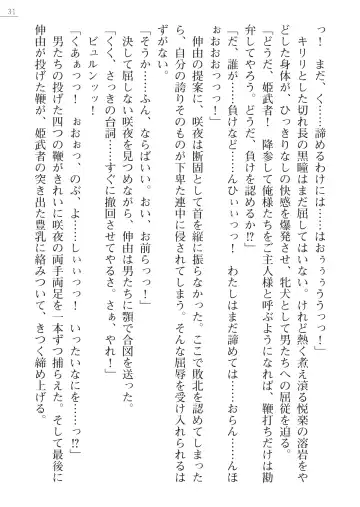 31
っ！　まだ、く……諦めるわけには……はお
ぅぅぅううっっ！
　キリリとした切れ長の黒瞳はまだ屈してはいない。けれど熱く煮え滾る悦楽の溶岩を
宿した身体が、ひっきりなしの快感を爆発させ、牝犬として男たちへの屈従を迫る。
「どうだ、姫武者！　降参して俺様たちをご主人様と呼ぶようになれば、鞭打ちだけは勘
弁してやろう。どうだ、負けを認めるか⁉」
「だ、誰が……負けなど……んひぃっっ！　わたしはまだ諦めては……おらん……んほ
おおおおっっっ！」
　伸由の提案に、咲夜は断固として首を縦に振らなかった。ここで敗北を認めてしまった
ら、自分の誇りそのものが下卑た連中に侵されてしまう。そんな屈辱を受け入れられるは
ずがない。
「そうか……ふん、ならばいい。おい、お前らっっ！」
　決して屈しない咲夜を見つめながら、伸由は男たちに顎で合図を送った。
「くく、さっきの台詞……すぐに撤回させてやるさ。さぁ、やれ！」
　ビュルンッッ！
「くあぁっっ！　おぉおっ、よ、よし……！　いったいなにを……っ⁉」
　男たちの投げた四つの鞭がきれいに咲夜の両手両足を一本ずつ捕らえた。そして最後に
伸由が投げた鞭が、姫武者の突き出た豊乳に絡みついて、きつく締め上げる。